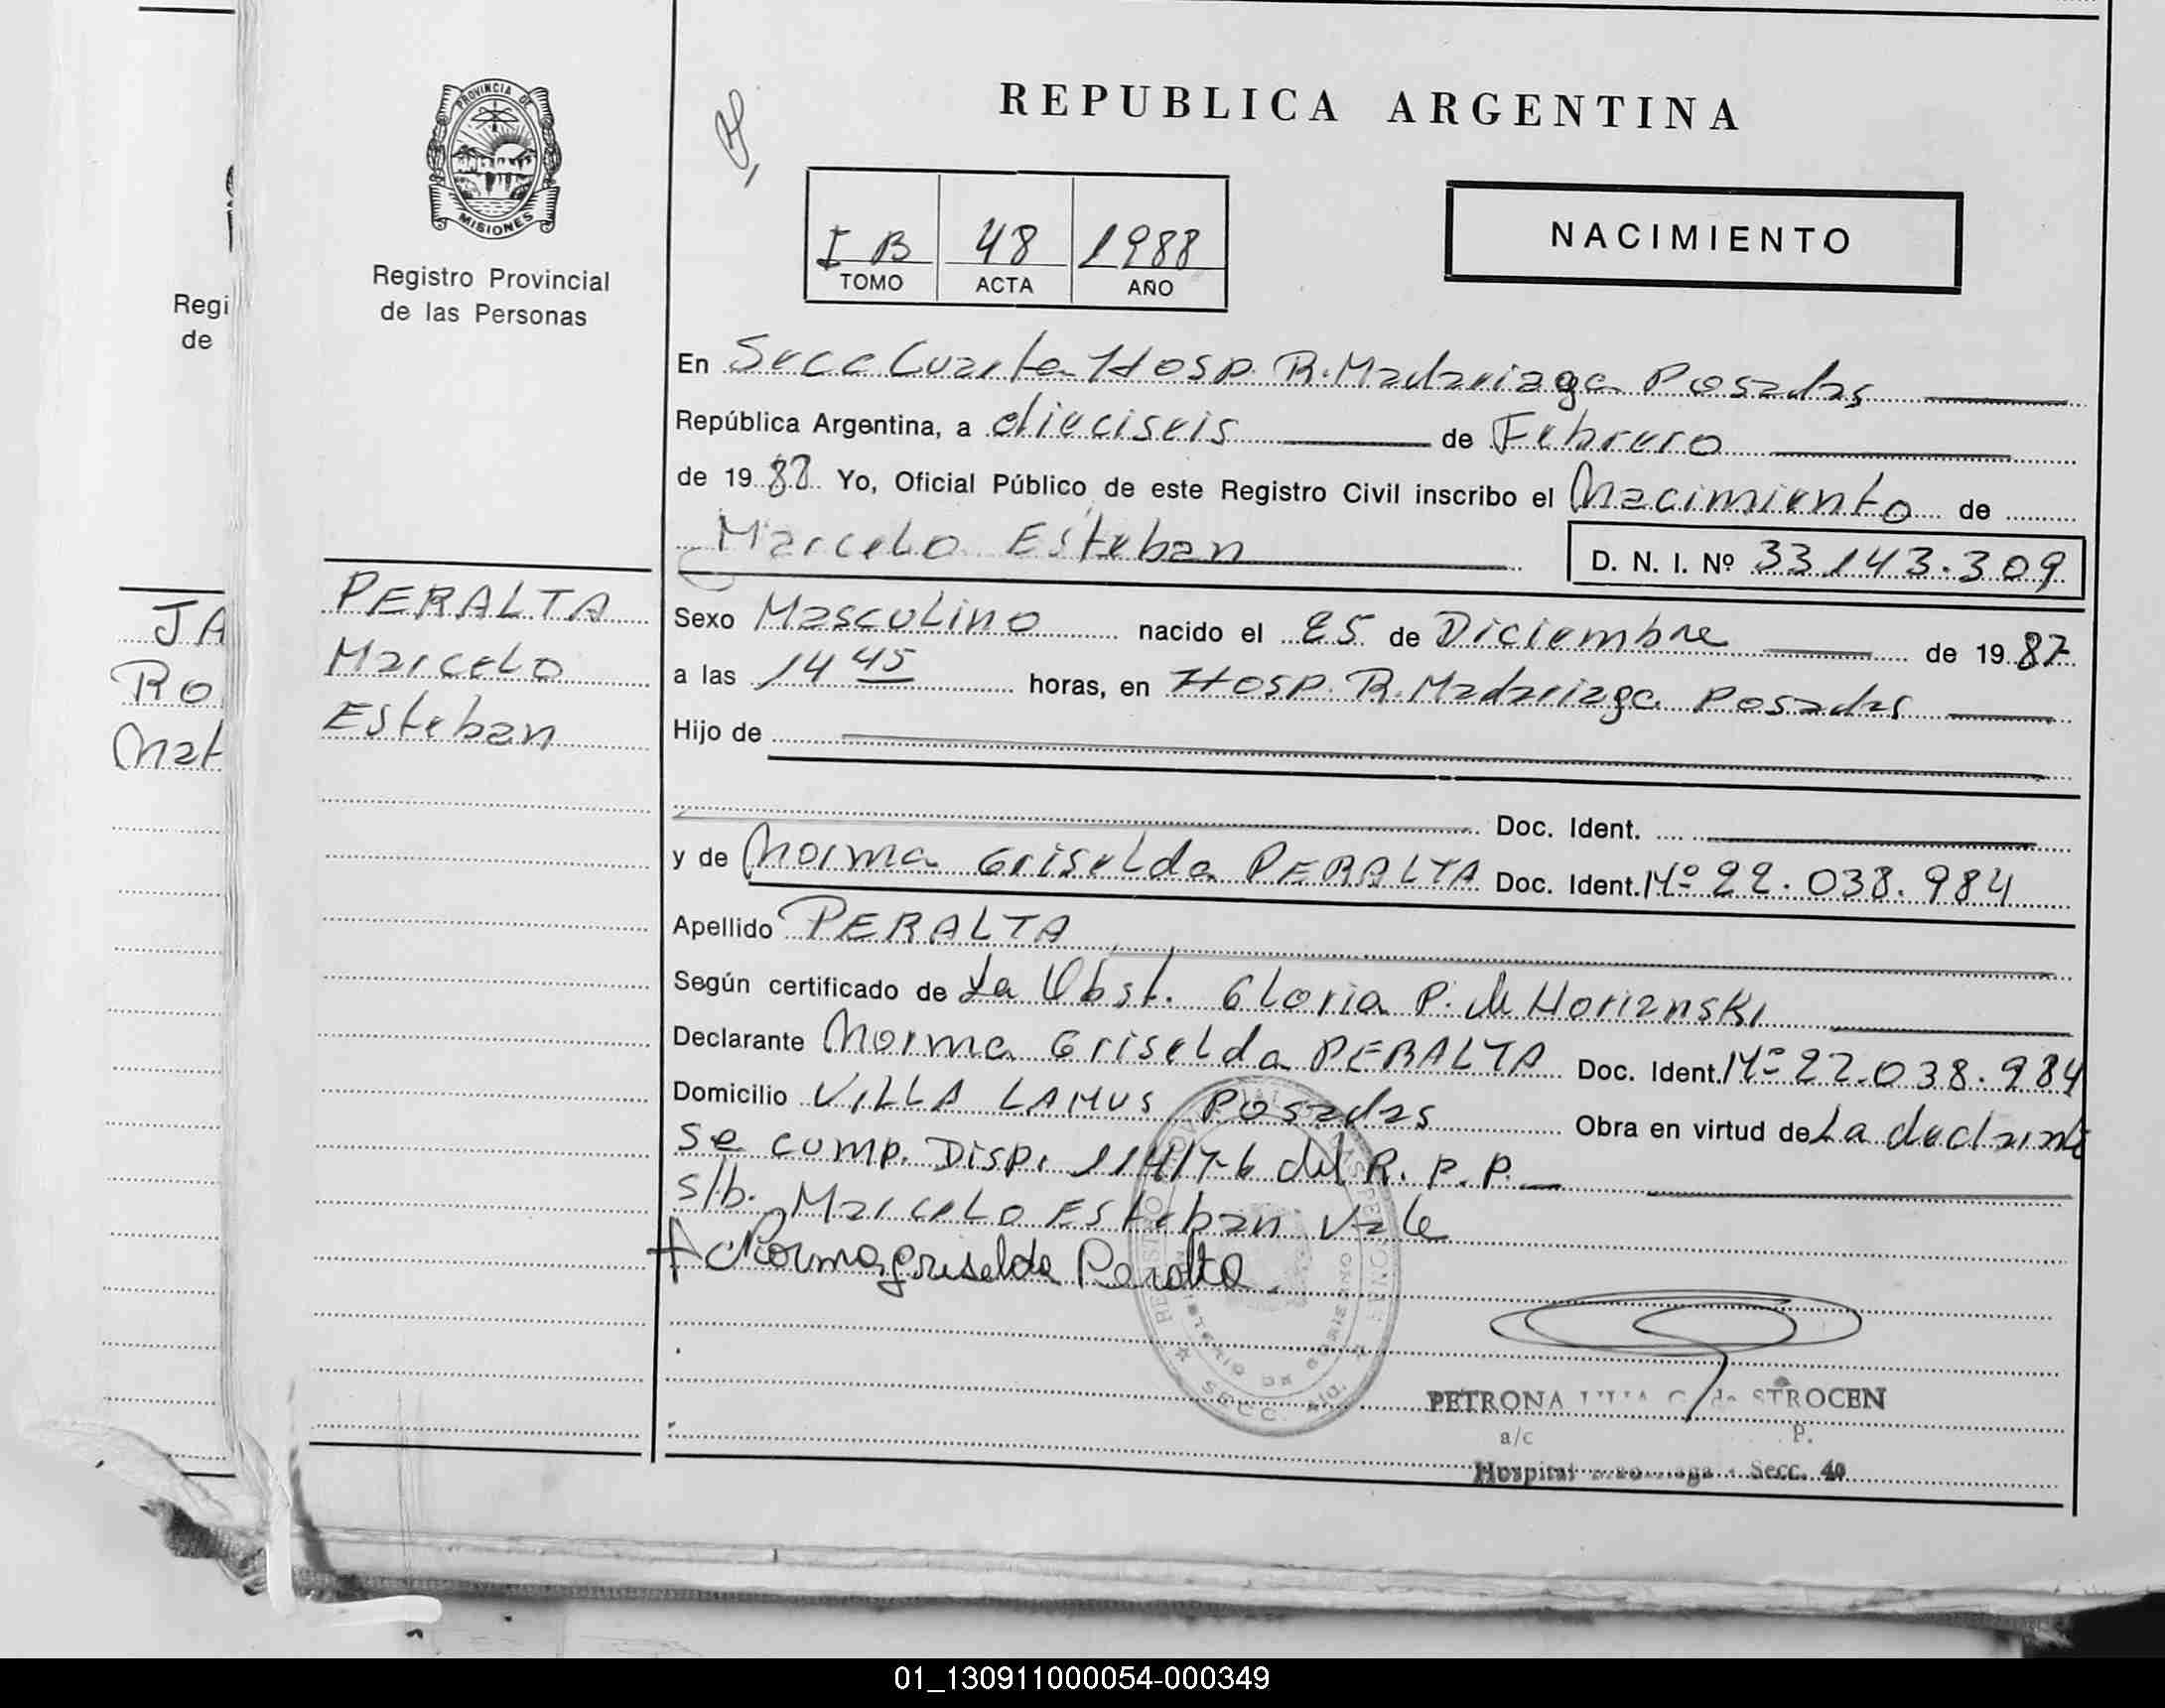 PROVINCIA DE
MISIONES
Registro Provincial
de las Personas
Regi
de
JA
Ro
Nat
PERALTA
Marcelo
Esteban
REPUBLICA ARGENTINA
I B 48 1988
TOMO ACTA AÑO
NACIMIENTO
En Secc Cuarta Hosp. R. Madariaga Posadas
República Argentina, a dieciseis de Febrero
de 1988 Yo, Oficial Público de este Registro Civil inscribo el Nacimiento de
Marcelo Esteban D. N. I. Nº 33.143.309
Sexo Masculino nacido el 25 de Diciembre de 1987
a las 14 45 horas, en Hosp. R. Madariaga Posadas
Hijo de
Doc. Ident.
y de Norma Griselda PERALTA Doc. Ident. Nº 22.038.984
Apellido PERALTA
Según certificado de La Obst. Gloria P. de Horianski
Declarante Norma Griselda PERALTA Doc. Ident. Nº 22.038.984
Domicilio VILLA LANUS Posadas Obra en virtud de La declarante
se comp. Disp. 114/76 del R. P. P.
s/b. Marcelo Esteban Vale
Norma Griselda Peralta
PETRONA C. de STROCEN
a/c P.
Hospital Secc. 4a
01_130911000054-000349